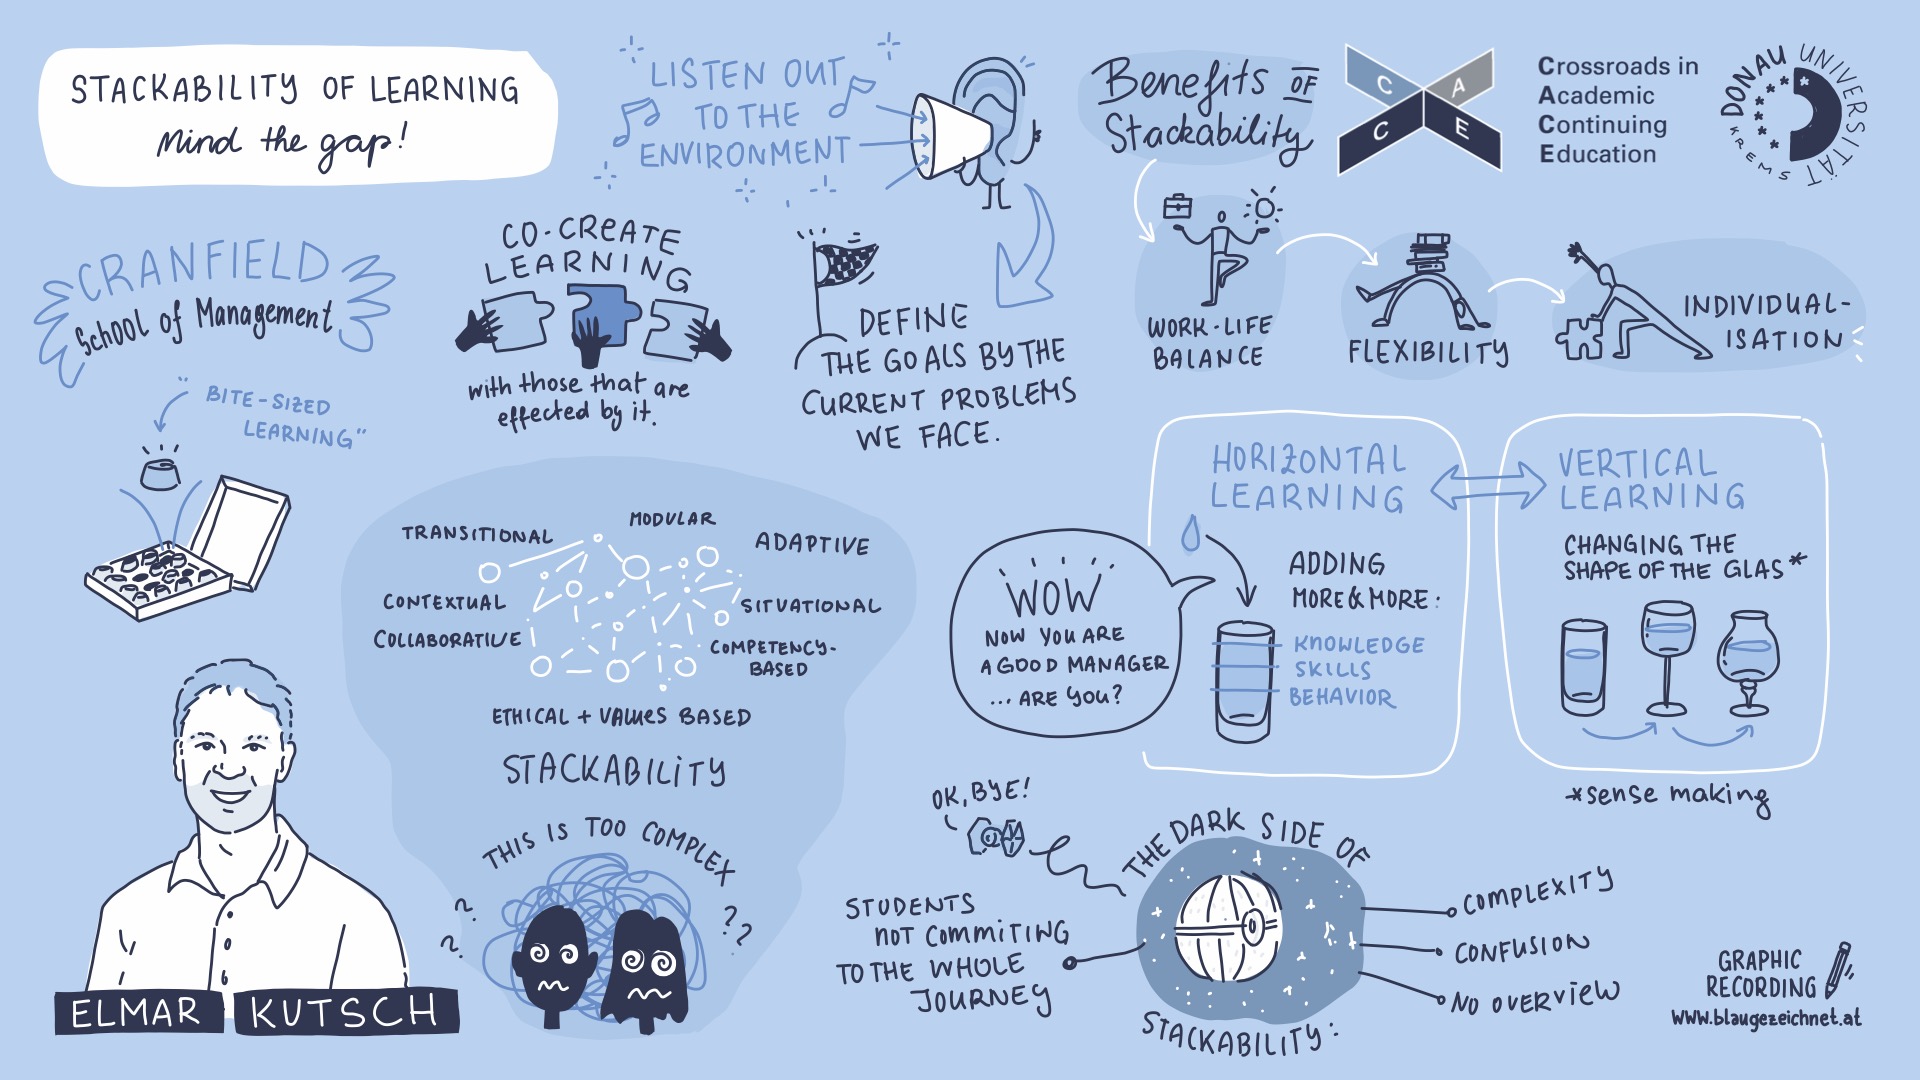 STACKABILITY OF LEARNING
Mind the gap!
LISTEN OUT
TO THE
ENVIRONMENT
Benefits OF
Stackability
C A
C E
Crossroads in
Academic
Continuing
Education
DONAU UNIVERSITÄT
KREMS
CRANFIELD
School of Management
"BITE-SIZED
LEARNING"
CO-CREATE
LEARNING
with those that are
effected by it.
DEFINE
THE GOALS BY THE
CURRENT PROBLEMS
WE FACE.
WORK-LIFE
BALANCE
FLEXIBILITY
INDIVIDUAL-
ISATION
TRANSITIONAL
MODULAR
ADAPTIVE
CONTEXTUAL
SITUATIONAL
COLLABORATIVE
COMPETENCY-
BASED
ETHICAL + VALUES BASED
STACKABILITY
THIS IS TOO COMPLEX
? ?
? ?
HORIZONTAL
LEARNING
ADDING
MORE & MORE:
KNOWLEDGE
SKILLS
BEHAVIOR
WOW
NOW YOU ARE
A GOOD MANAGER
... ARE YOU?
VERTICAL
LEARNING
CHANGING THE
SHAPE OF THE GLAS*
*sense making
OK, BYE!
THE DARK SIDE OF
STACKABILITY:
STUDENTS
NOT COMMITING
TO THE WHOLE
JOURNEY
COMPLEXITY
CONFUSION
NO OVERVIEW
ELMAR KUTSCH
GRAPHIC
RECORDING
www.blaugezeichnet.at